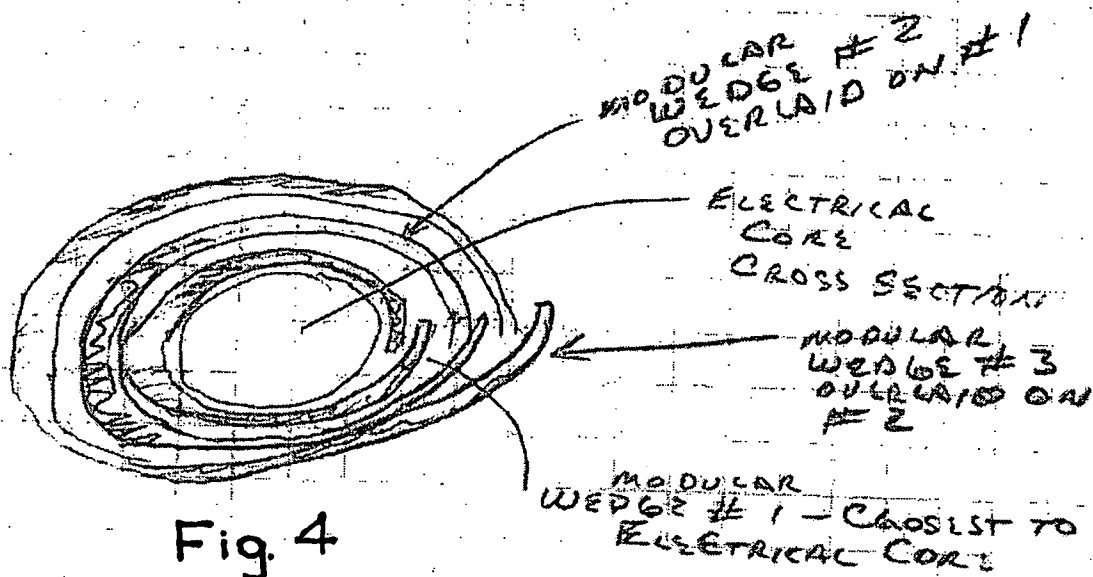 MODULAR
WEDGE # 2
OVERLAID ON # 1
ELECTRICAL
CORE
CROSS SECTION
MODULAR
WEDGE # 3
OVERLAID ON
# 2
MODULAR
WEDGE # 1 - CLOSEST TO
ELEETRICAL CORE
Fig. 4